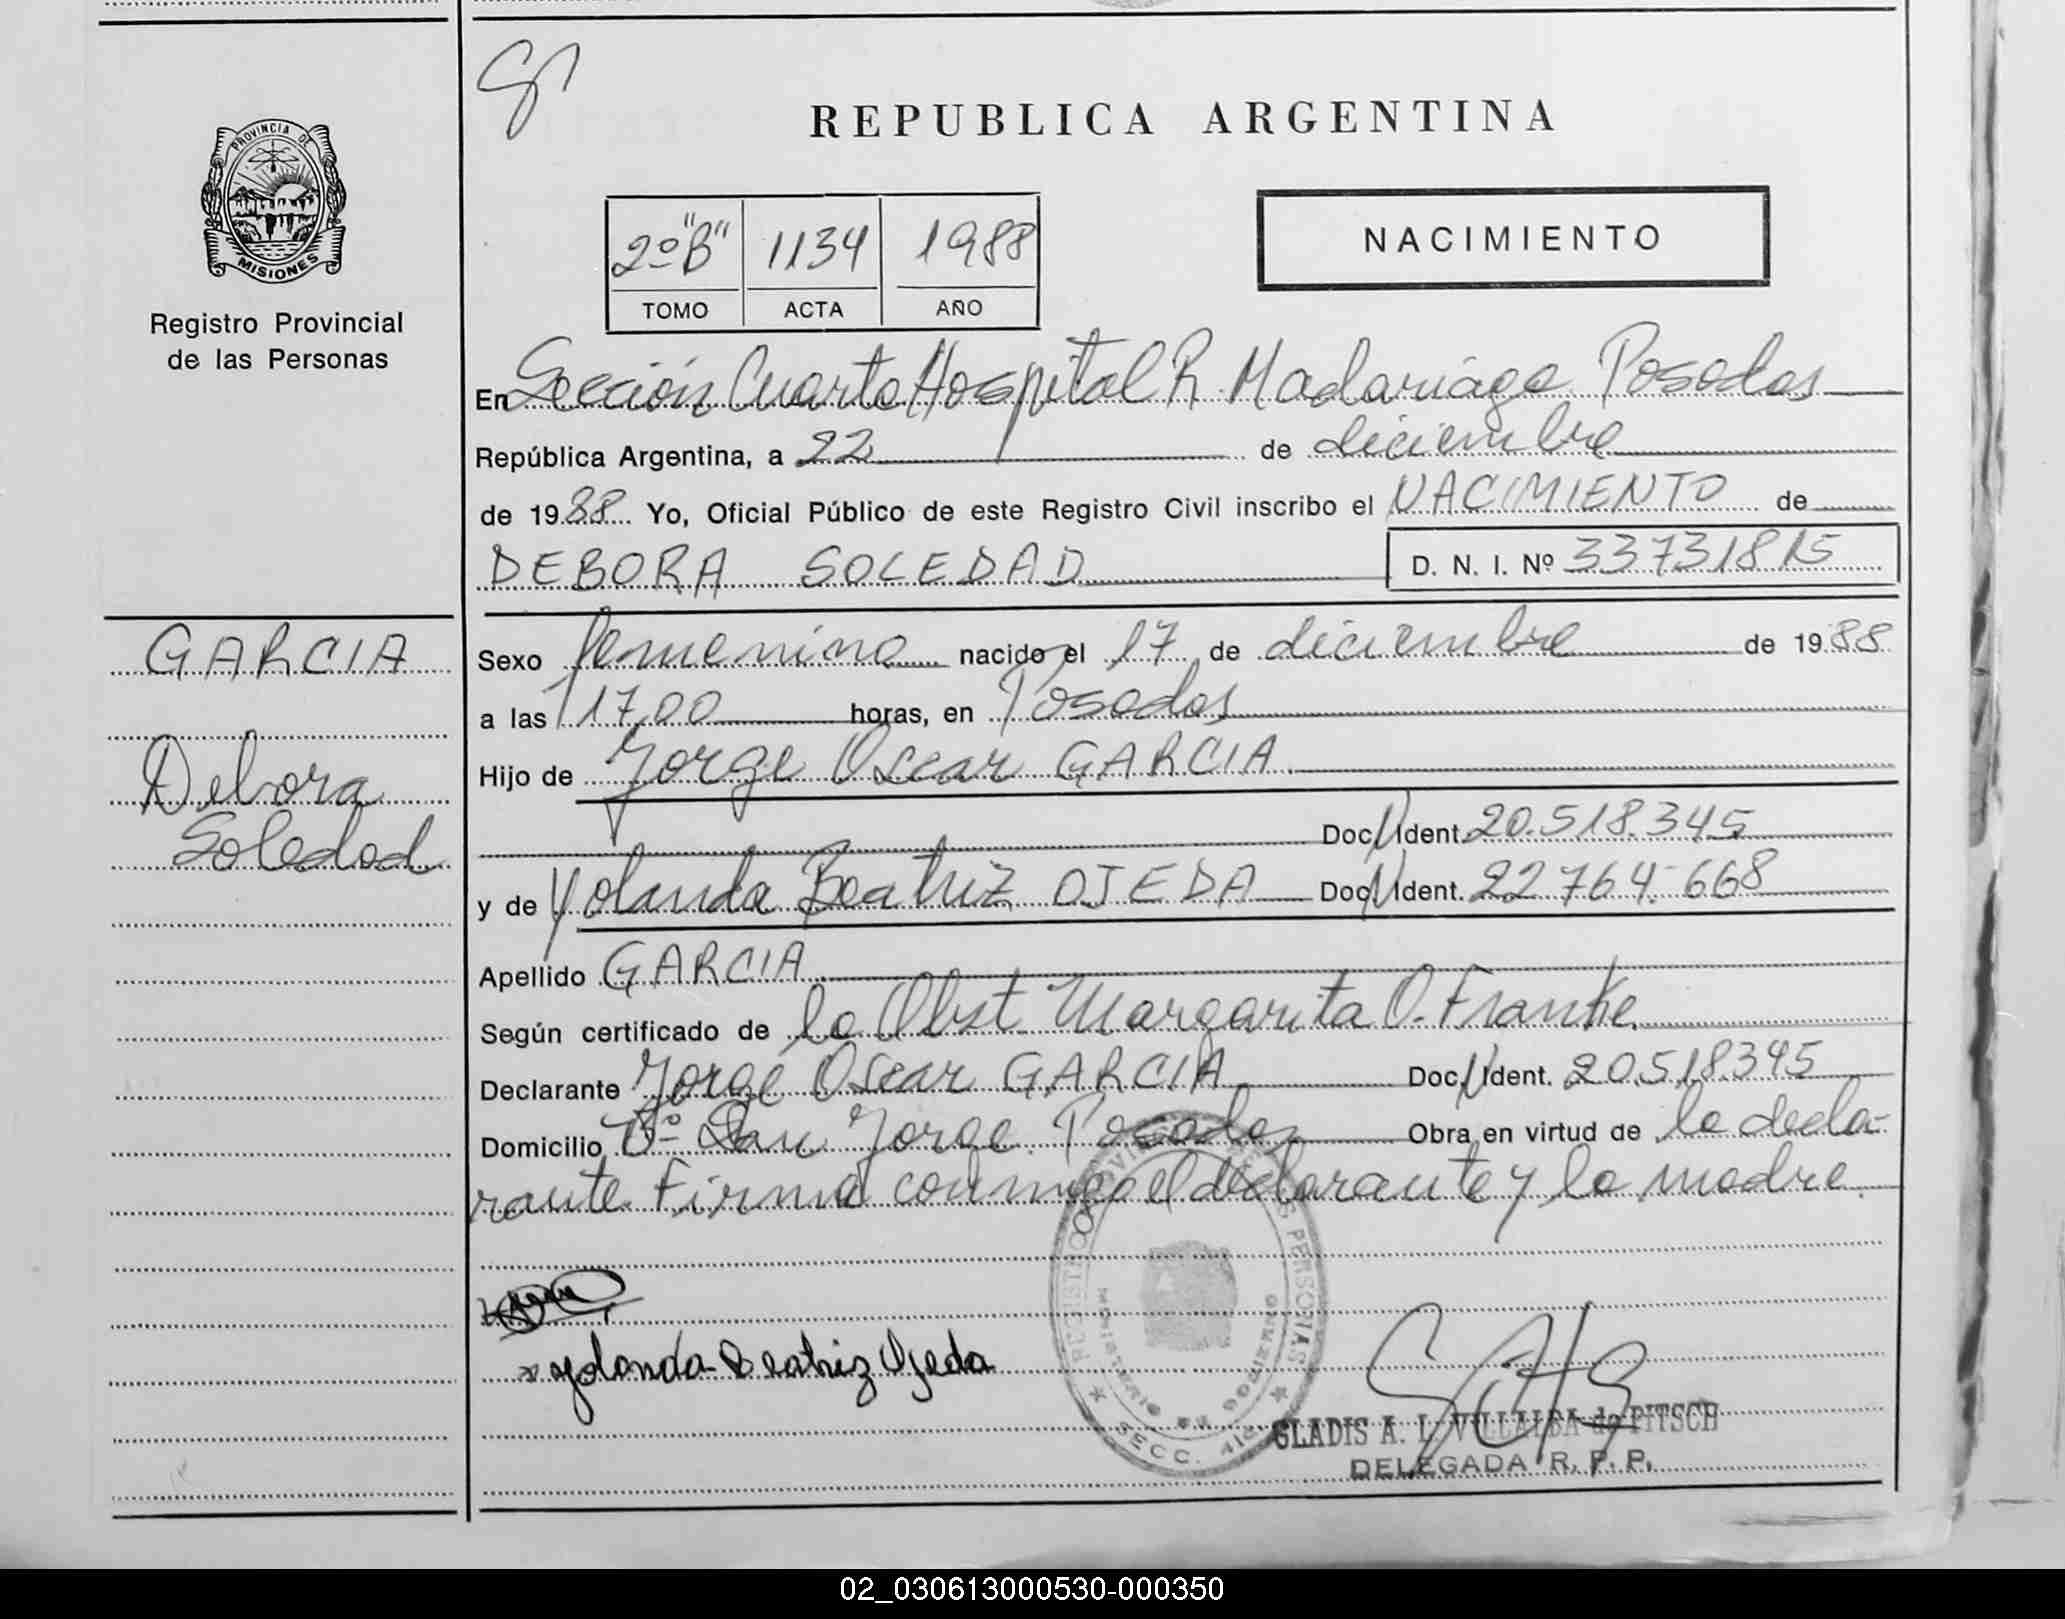 REPUBLICA ARGENTINA
PROVINCIA DE
MISIONES
Registro Provincial
de las Personas
2º "B" 1134 1988
TOMO ACTA AÑO
NACIMIENTO
En Sección Cuarta Hospital R. Madariaga Posadas
República Argentina, a 22 de diciembre
de 1988 Yo, Oficial Público de este Registro Civil inscribo el NACIMIENTO de
DEBORA SOLEDAD
D. N. I. Nº 33731815
GARCIA
Debora
Soledad
Sexo femenino nacido el 17 de diciembre de 1988
a las 17,00 horas, en Posadas
Hijo de Jorge Oscar GARCIA
Doc. N Ident. 20.518.345
y de Yolanda Beatriz OJEDA Doc. N Ident. 22 764 668
Apellido GARCIA
Según certificado de la Obst. Margarita O. Franke
Declarante Jorge Oscar GARCIA Doc. N Ident. 20.518345
Domicilio Bº San Jorge. Posadas Obra en virtud de la decla-
rante. Firma conmigo el declarante y la madre.
Yolanda Beatriz Ojeda
SECC. 4ta
GLADIS A. L. VILLALBA de PITSCH
DELEGADA R. P. P.
02_030613000530-000350